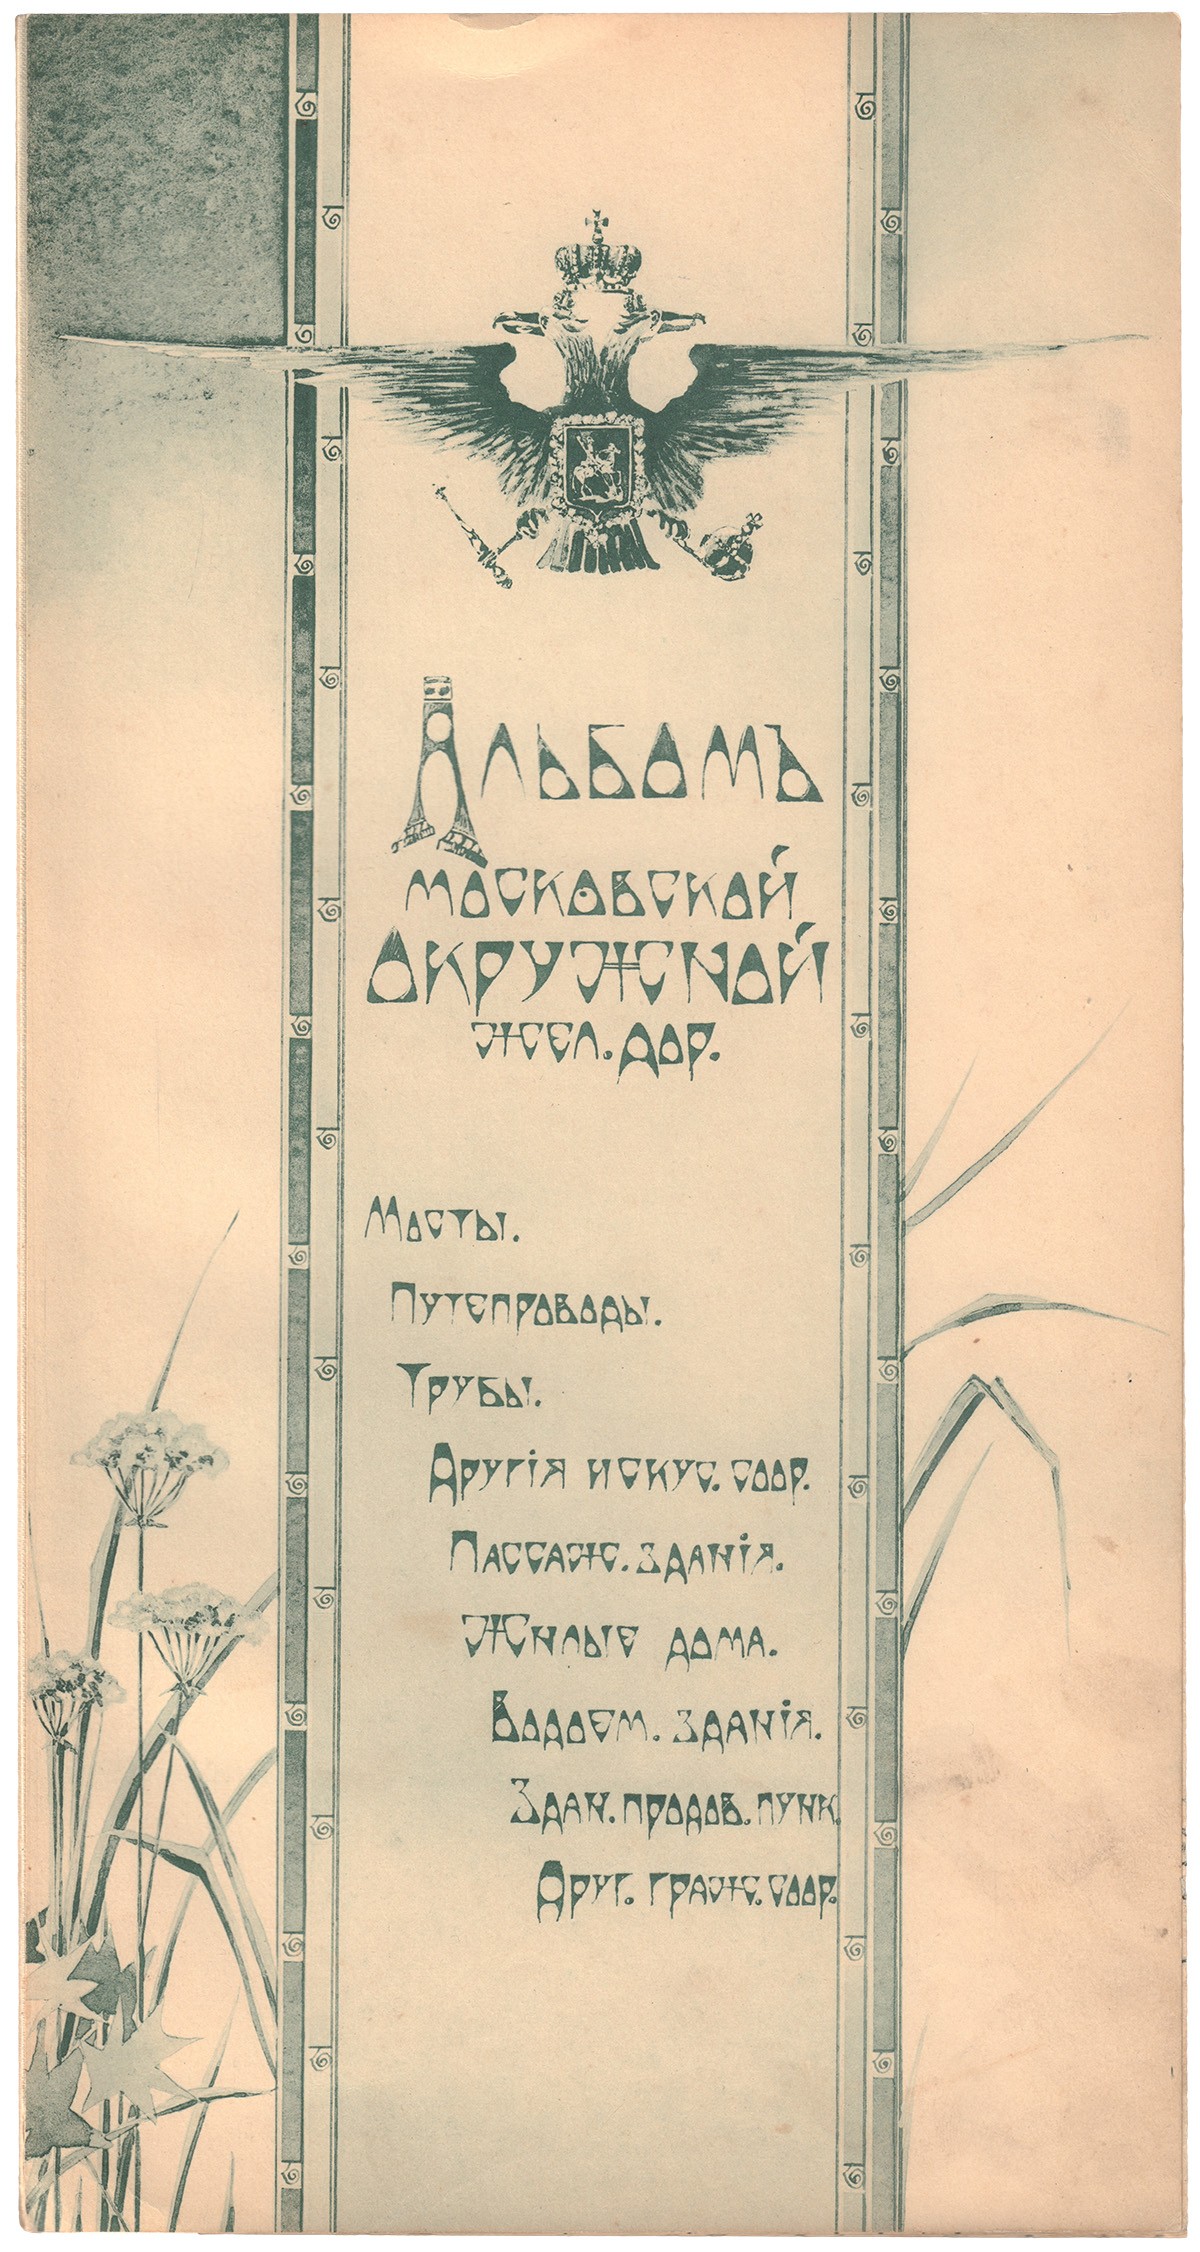 Альбомъ
Московской
Окружной
жел. дор.
Мосты.
Путепроводы.
Трубы.
Другія искус. соор.
Пассаж. зданія.
Жилые дома.
Водоем. зданія.
Здан. продов. пунк.
Друг. граж. соор.